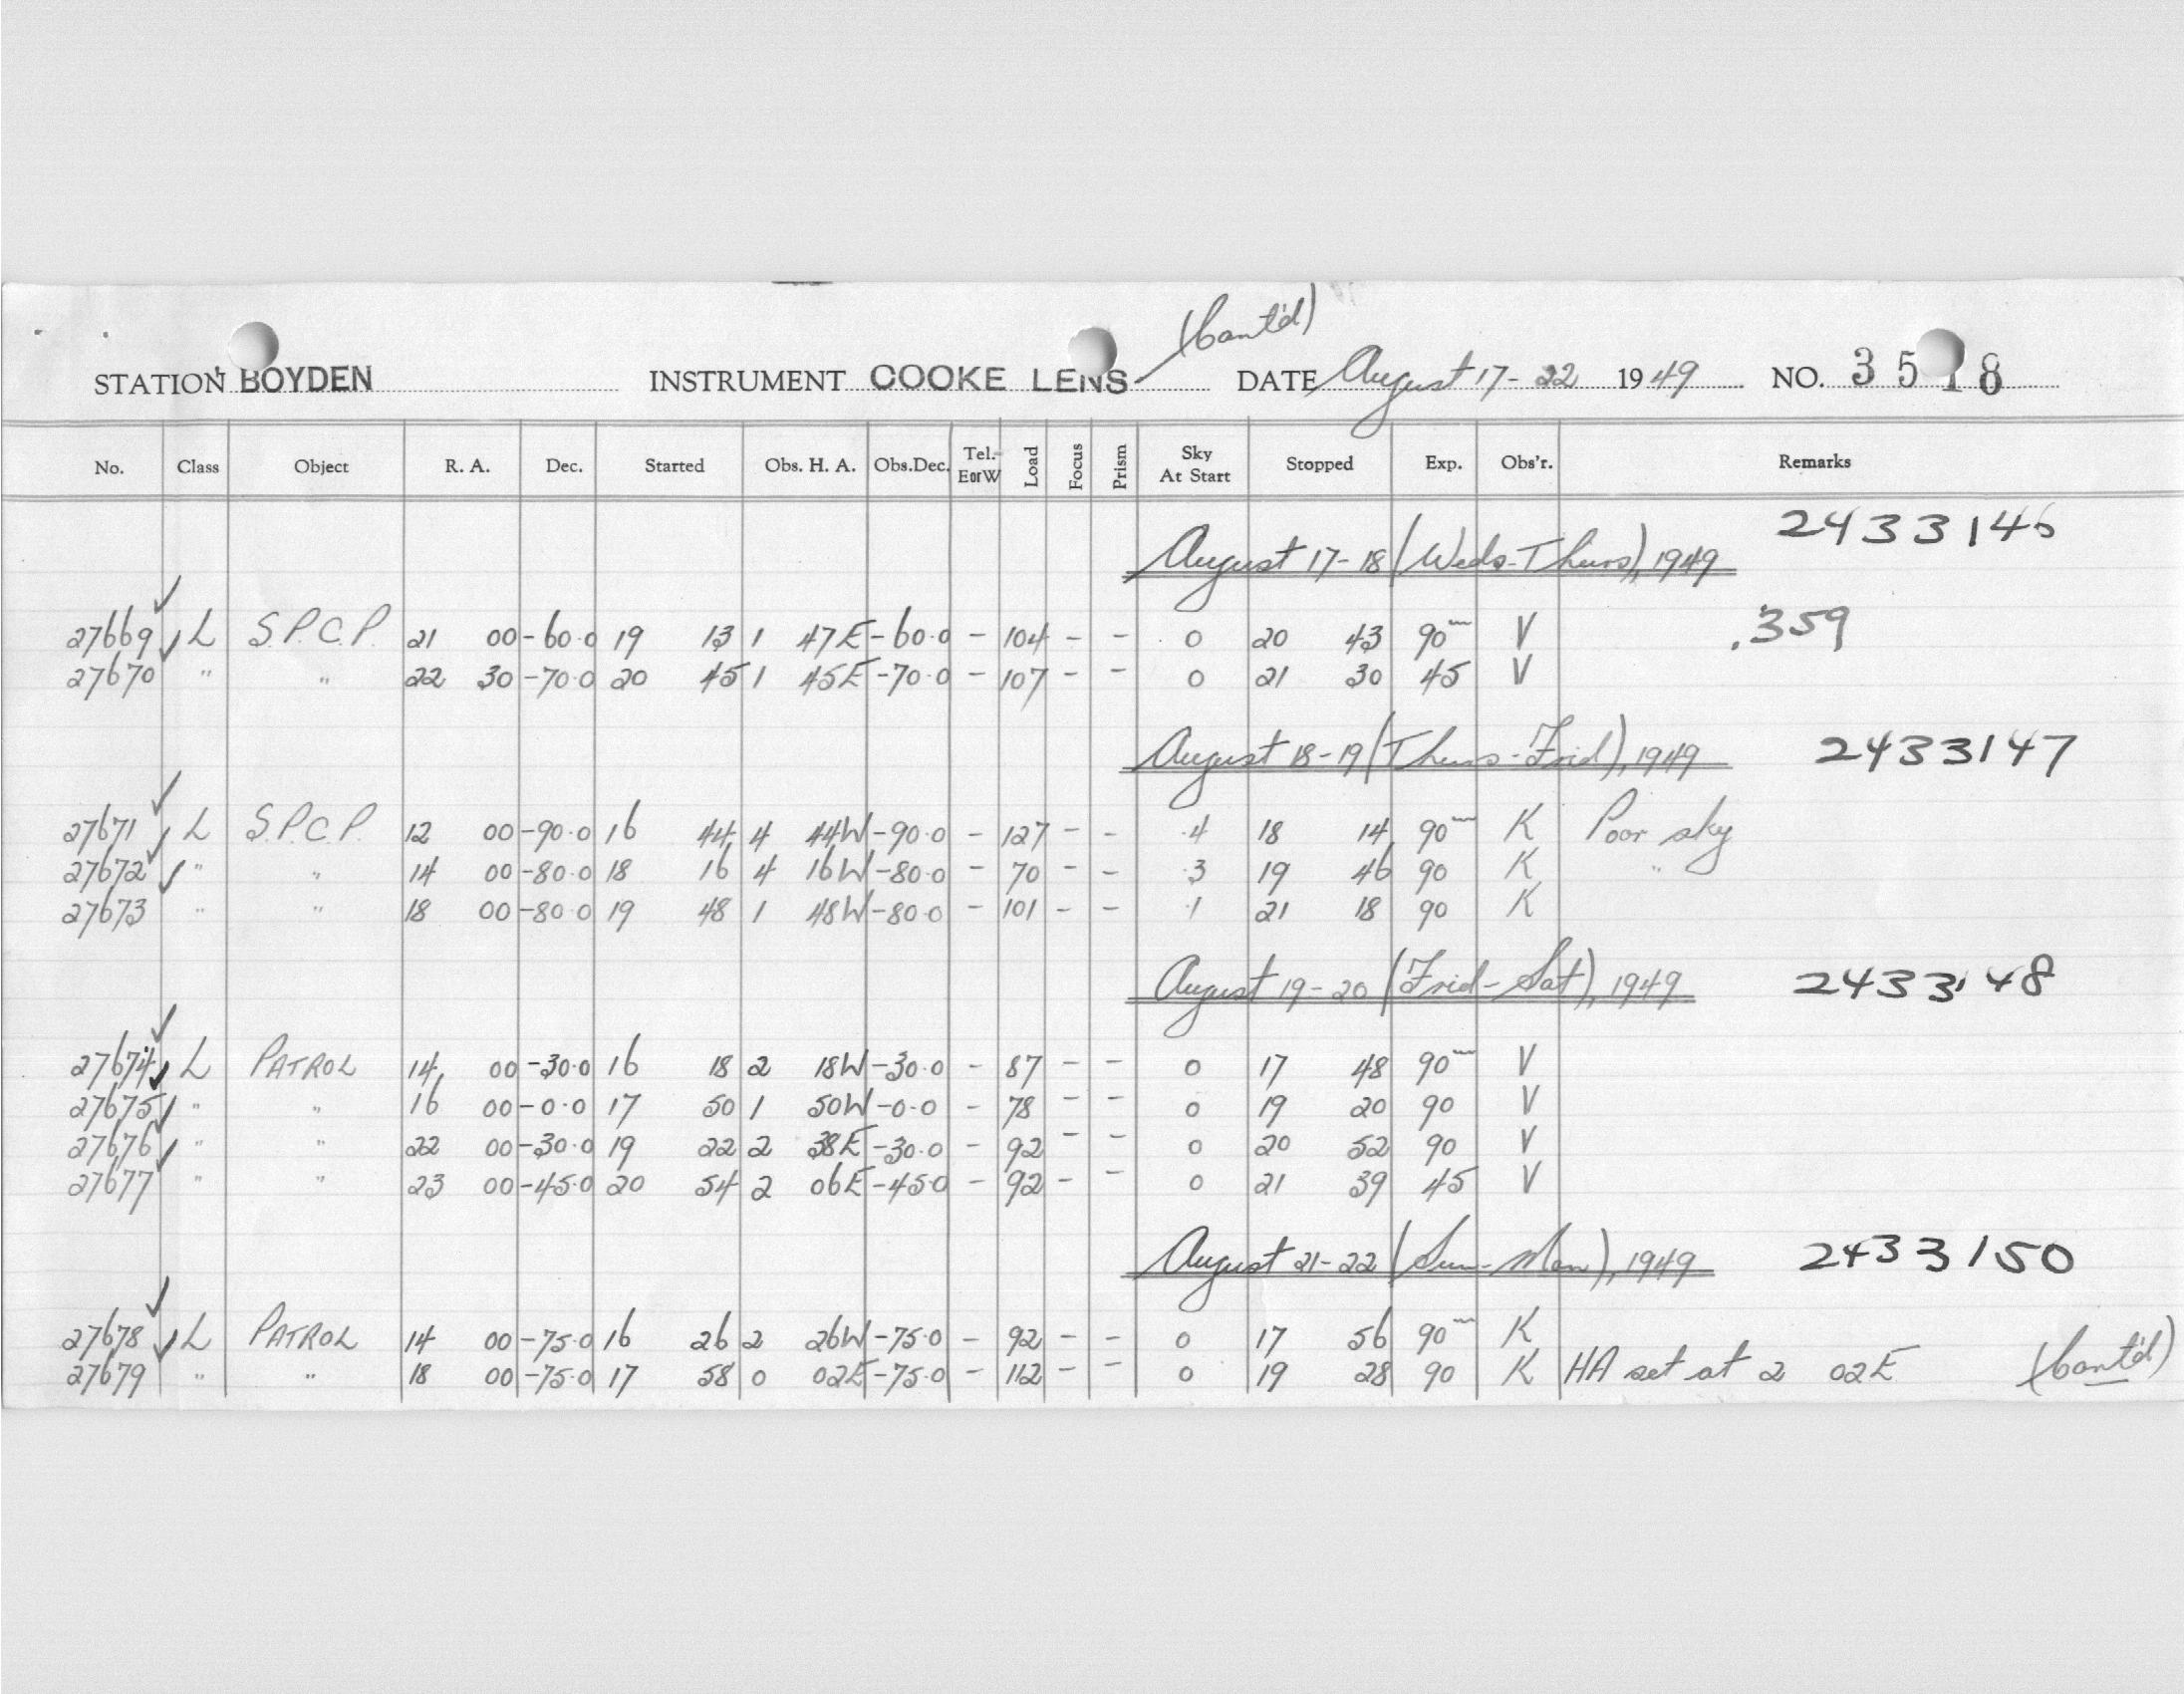 (Cont'd)
STATION BOYDEN INSTRUMENT COOKE LENS DATE August 17-22 1949 NO. 3518
No. Class Object R. A. Dec. Started Obs. H. A. Obs.Dec. Tel. E or W Load Focus Prism Sky At Start Stopped Exp. Obs'r. Remarks
August 17-18 (Weds-Thurs), 1949 2433146
27669 L S.P.C.P. 21 00 -60.0 19 13 1 47E -60.0 - 104 - - 0 20 43 90m V .359
27670 " " 22 30 -70.0 20 45 1 45E -70.0 - 107 - - 0 21 30 45 V
August 18-19 (Thurs-Frid), 1949 2433147
27671 L S.P.C.P. 12 00 -90.0 16 44 4 44W -90.0 - 127 - - .4 18 14 90m K Poor sky
27672 " " 14 00 -80.0 18 16 4 16W -80.0 - 70 - - .3 19 46 90 K "
27673 " " 18 00 -80.0 19 48 1 48W -80.0 - 101 - - .1 21 18 90 K
August 19-20 (Frid-Sat), 1949 2433148
27674 L PATROL 14 00 -30.0 16 18 2 18W -30.0 - 87 - - 0 17 48 90m V
27675 " " 16 00 -0.0 17 50 1 50W -0.0 - 78 - - 0 19 20 90 V
27676 " " 22 00 -30.0 19 22 2 38E -30.0 - 92 - - 0 20 52 90 V
27677 " " 23 00 -45.0 20 54 2 06E -45.0 - 92 - - 0 21 39 45 V
August 21-22 (Sun-Mon), 1949 2433150
27678 L PATROL 14 00 -75.0 16 26 2 26W -75.0 - 92 - - 0 17 56 90m K
27679 " " 18 00 -75.0 17 58 0 02E -75.0 - 112 - - 0 19 28 90 K HA set at 2 02E (Cont'd)